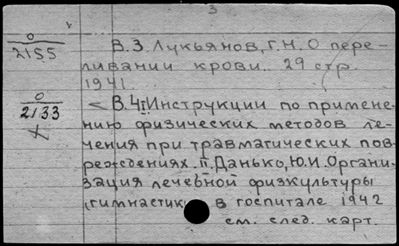 3
О
2155
В.З. Лукьянов, Г.Н. О пере-
ливании крови. 29 стр.
1941
О
2133
В.4. Инструкции по примене-
нию физических методов ле-
чения при травматических пов-
реждениях. П. Данько, Ю.И. Органи-
зация лечебной физкультуры
(гимнастик в госпитале 1942
см. след. карт.